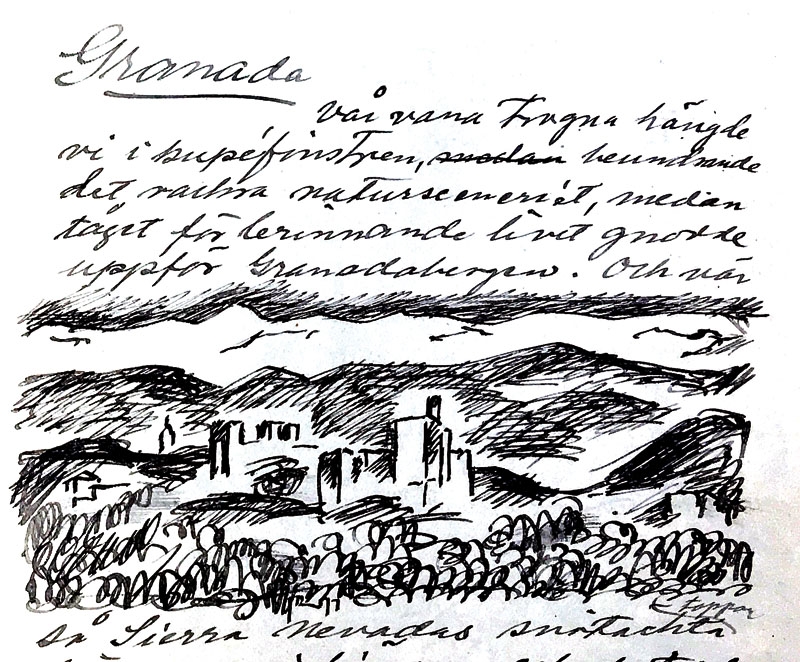 Granada
vår vana trogna hängde
vi i kupéfönstren, medan beundrande
det vackra naturscenerict, medan
tåget för brinnande livet gnodde
uppför Granadabergen. Och när
så Sierra Nevadas snötäckta